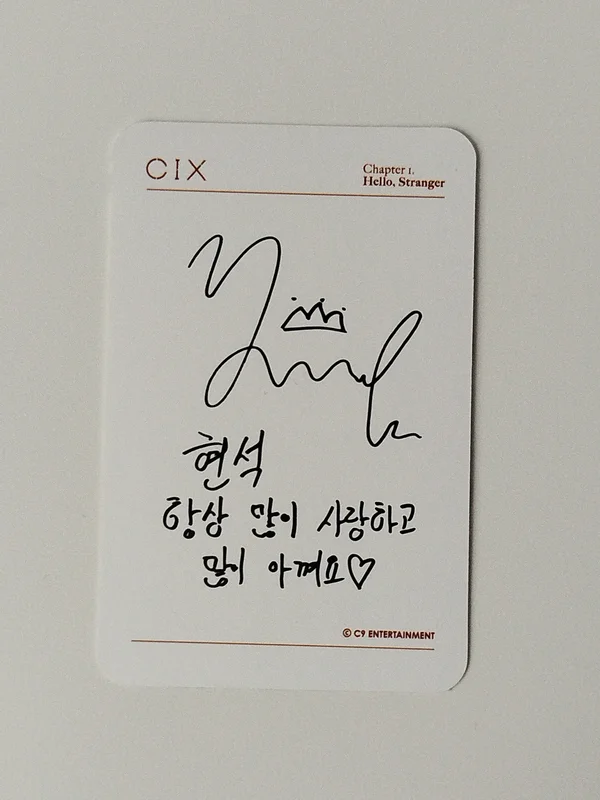 CIX
Chapter 1.
Hello, Stranger
현석
항상 많이 사랑하고
많이 아껴요♡
© C9 ENTERTAINMENT